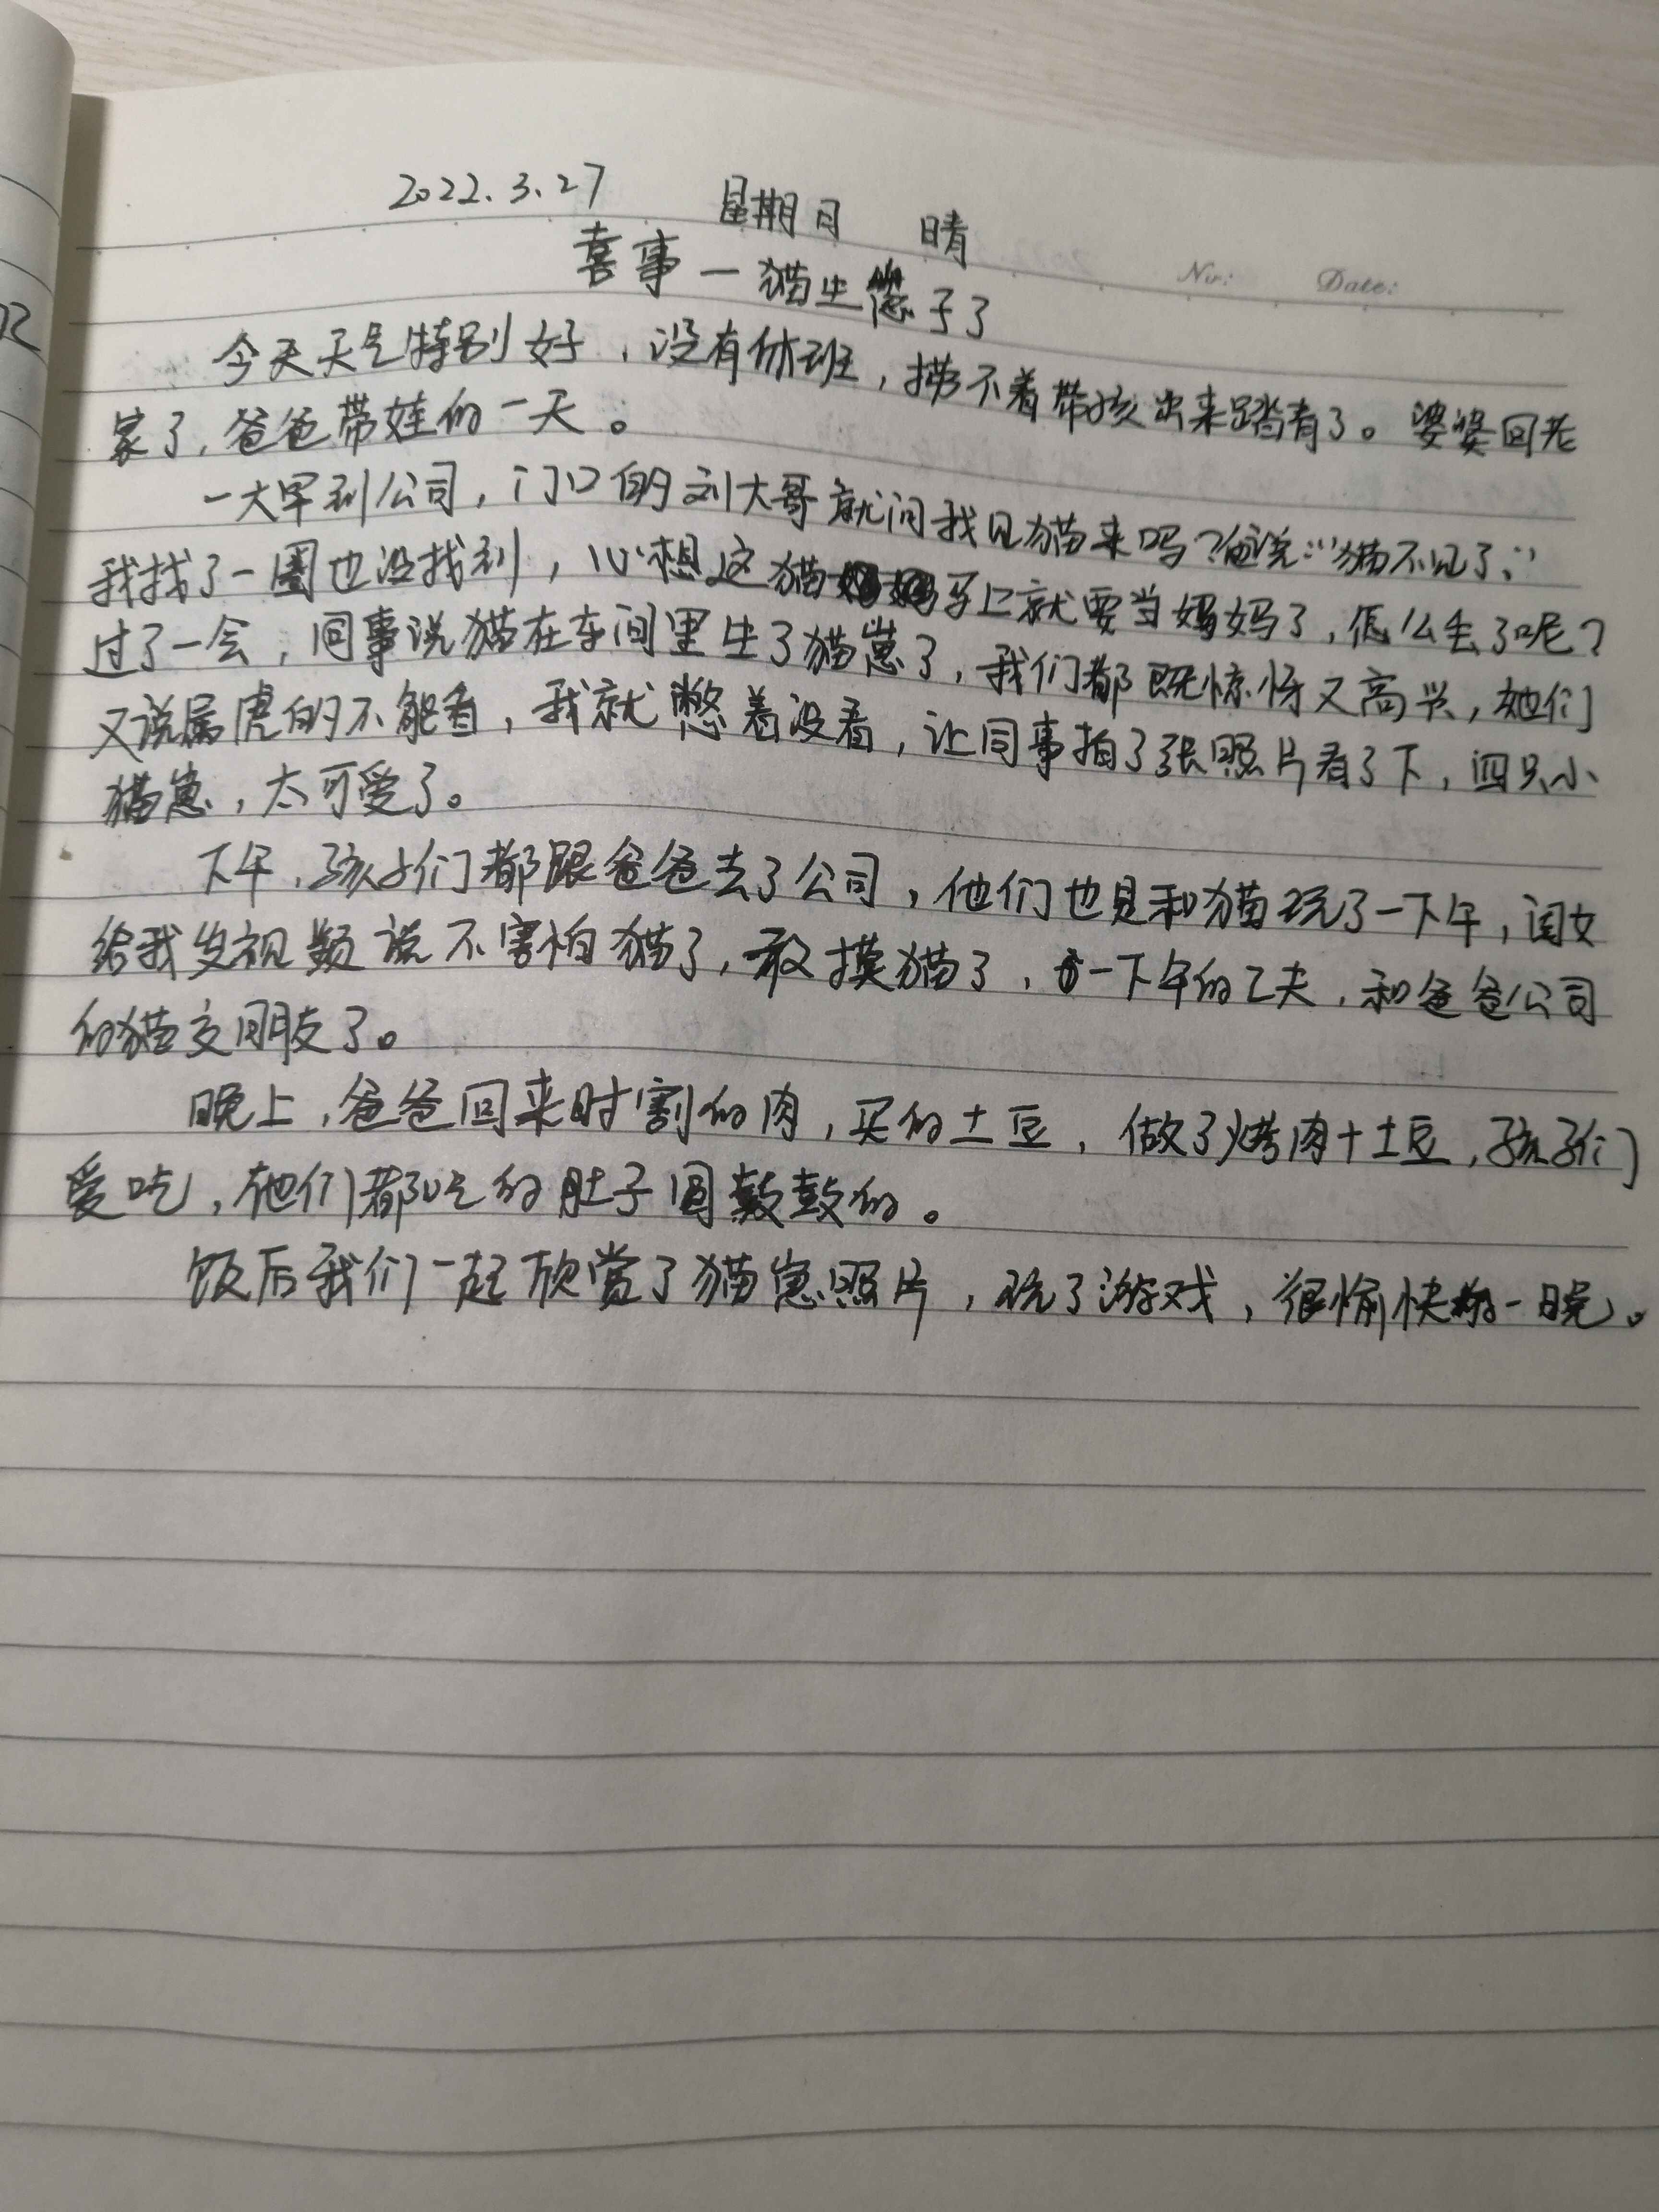 2022.3.27 星期日 晴
No: Date:
喜事—猫生崽子了
今天天气特别好，没有休班，捞不着带孩出来踏青了。婆婆回老
家了，爸爸带娃的一天。
一大早到公司，门口的刘大哥就问我见猫来吗？他说："猫不见了，"
我找了一圈也没找到，心想这猫马上就要当妈妈了，怎么丢了呢？
过了一会，同事说猫在车间里生了猫崽了，我们都既惊讶又高兴，她们
又说属虎的不能看，我就憋着没看，让同事拍了张照片看了下，四只小
猫崽，太可爱了。
下午，孩子们都跟爸爸去了公司，他们也是和猫玩了一下午，闺女
给我发视频说不害怕猫了，敢摸猫了，一下午的工夫，和爸爸公司
的猫交朋友了。
晚上，爸爸回来时割的肉，买的土豆，做了烤肉+土豆，孩子们
爱吃，他们都吃的肚子圆鼓鼓的。
饭后我们一起欣赏了猫崽照片，玩了游戏，很愉快的一晚。